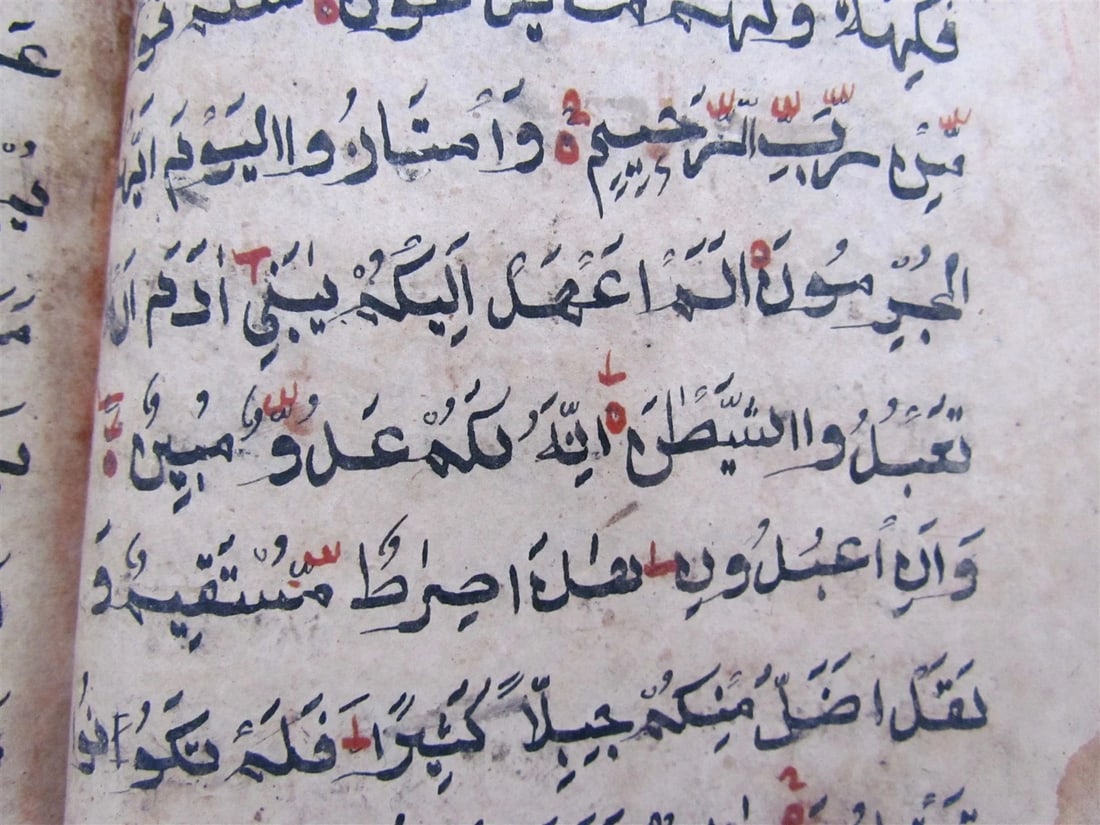 فكهة ولهم ما يدعون سلم قو
مِّن رَّبٍّ الرَّحِيمٍ وَامْتَازُوا الْيَوْمَ اَيُّهَا
الْمُجْرِمُونَ اَلَمْ اَعْهَدْ اِلَيْكُمْ يٰبَنِي اٰدَمَ اَلَّ
تَعْبُدُوا الشَّيْطٰنَ اِنَّهُ لَكُمْ عَدُوٌّ مُّبِينٌ
وَاَنِ اعْبُدُونِي هٰذَا صِرٰطٌ مُّسْتَقِيمٌ وَ
لَقَدْ اَضَلَّ مِنْكُمْ جِبِلًّا كَثِيرًا فَلَمْ تَكُونُوا